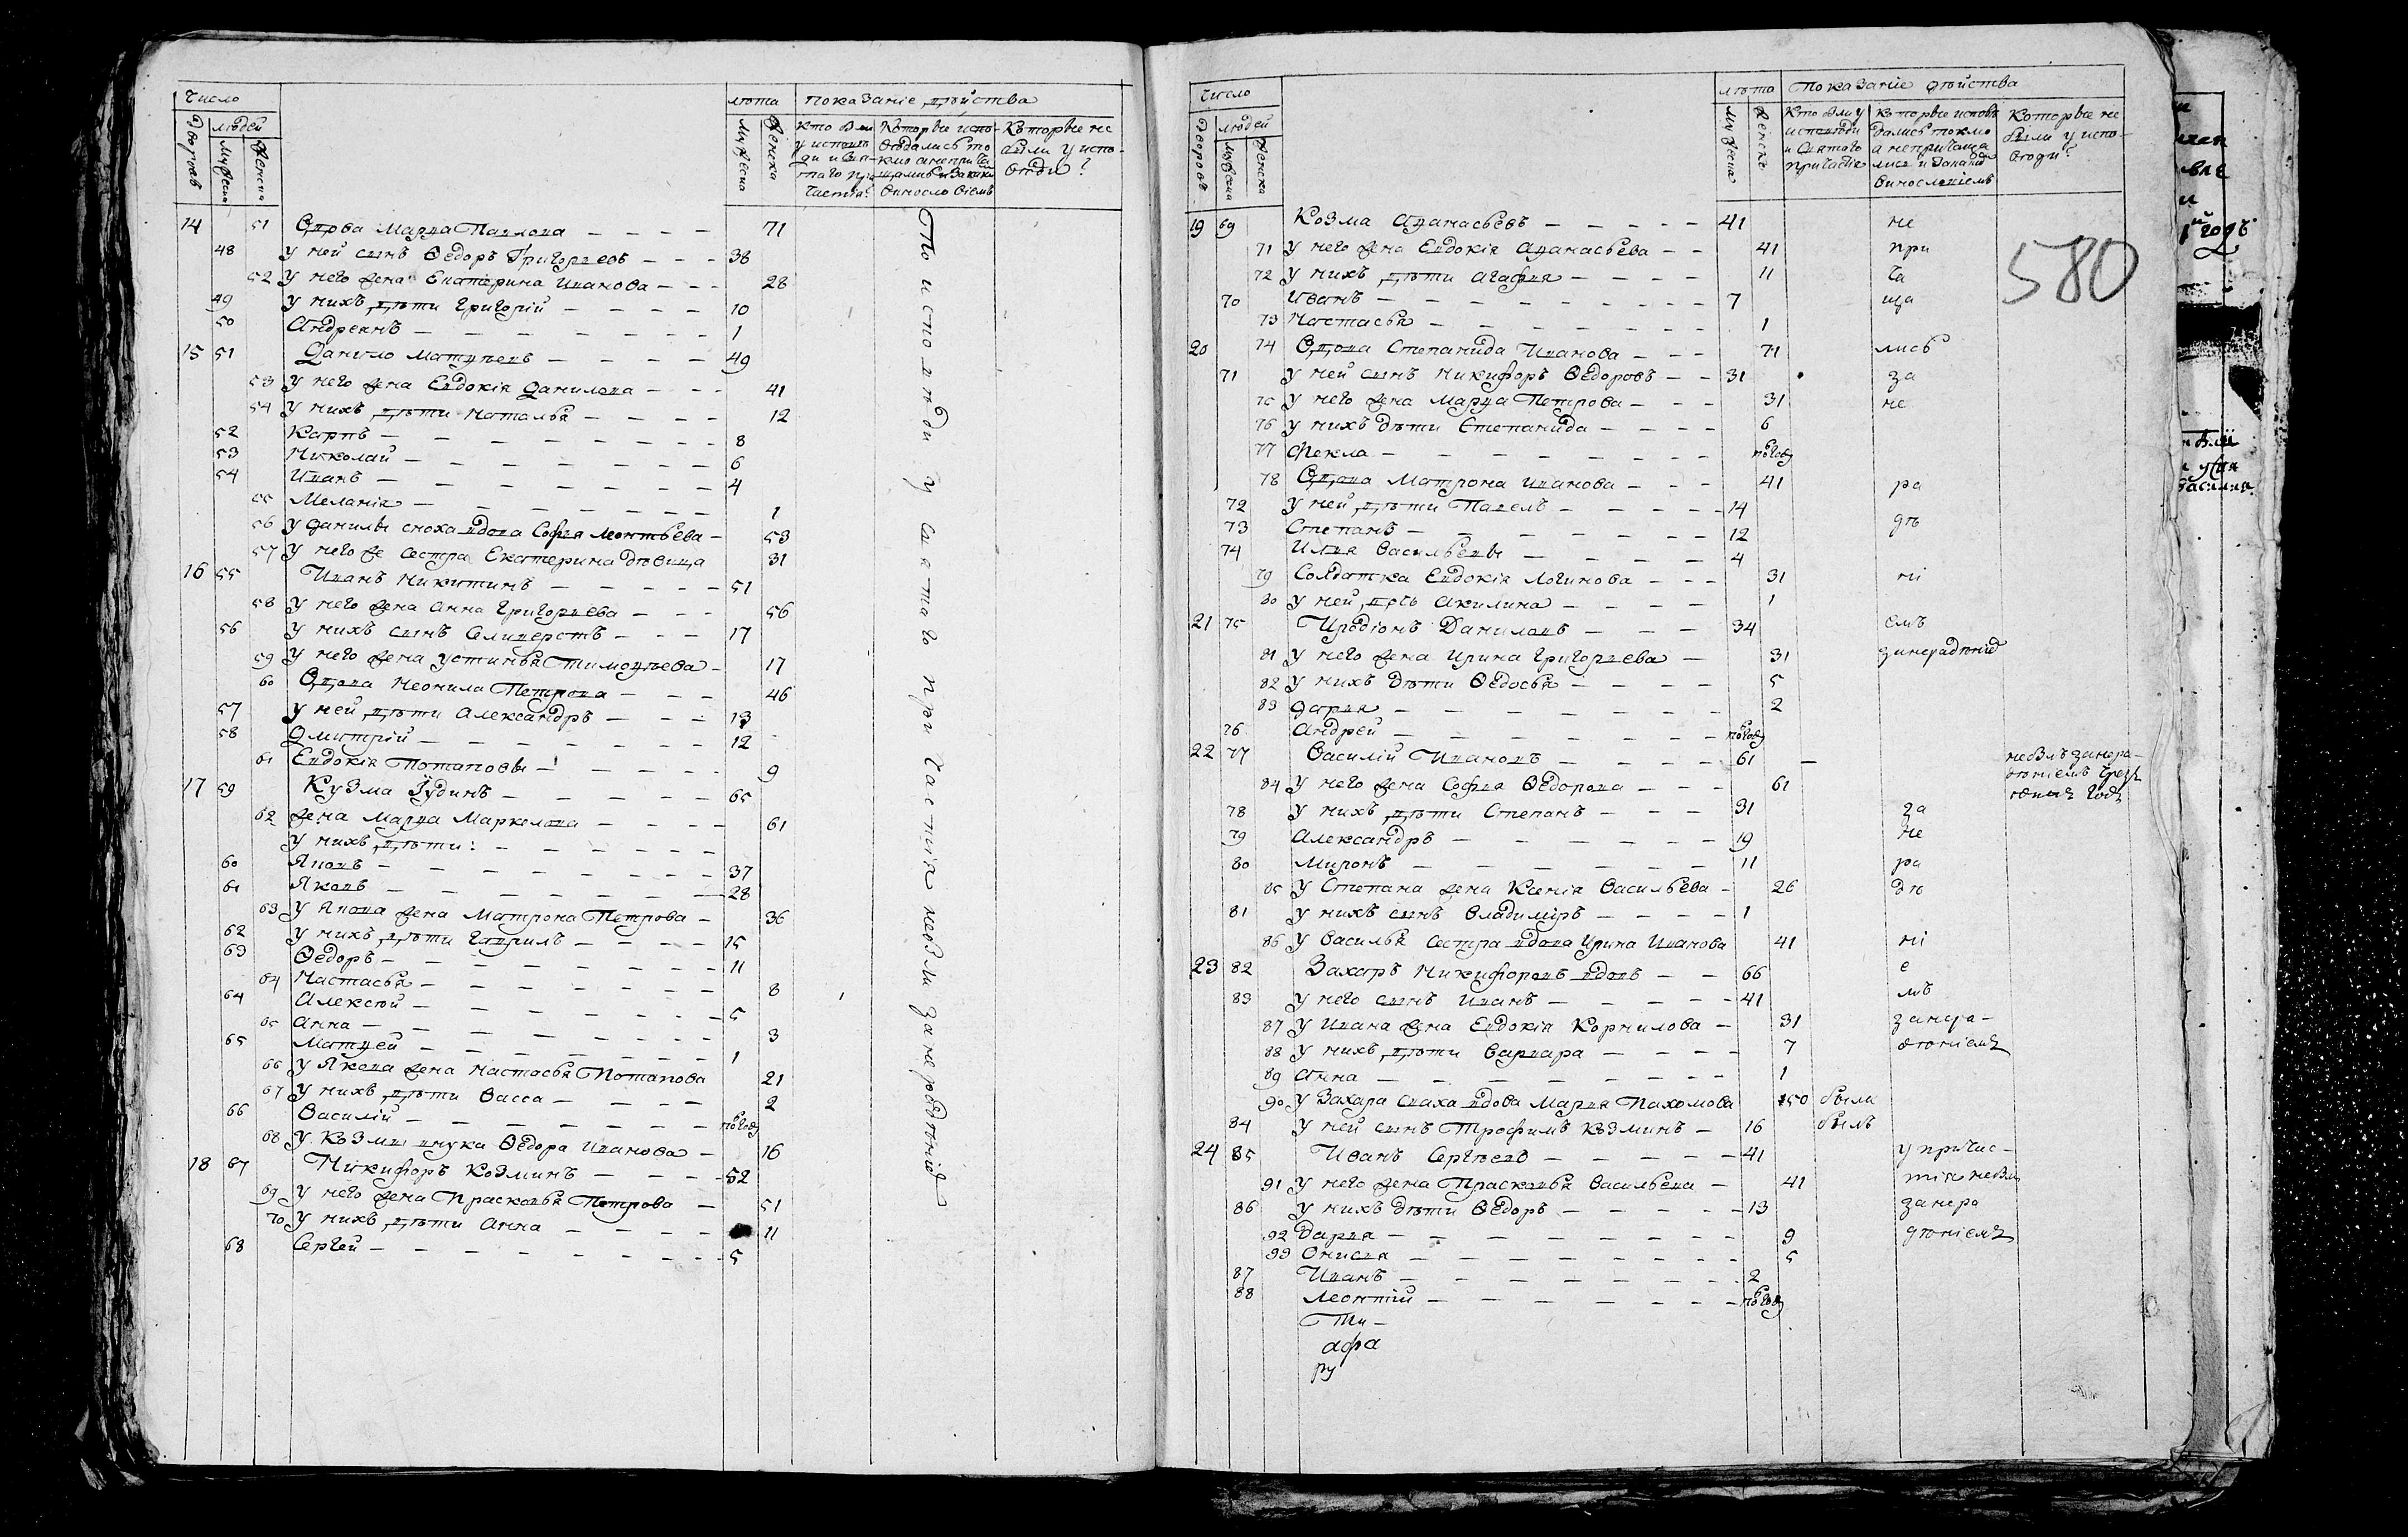 Число
людей
Дворовъ
Мужеска
Женска
лѣта
Мужеска
Женска
показаніе дѣйства
Кто были у исповѣди и святаго причастія?
Которые исповѣдались токмо а не причащались и за какимъ винословіемъ
Которые не были у исповѣди?
14 51 Вдова Марѳа Павлова 71
48 У ней сынъ Ѳедоръ Григорьевъ 38
52 У него жена Екатерина Иванова 28
49 У нихъ дѣти Григорій 10
50 Андреянъ 1
15 51 Данило Матвѣевъ 49
53 У него жена Евдокія Данилова 41
54 У нихъ дѣти Наталья 12
52 Карпъ 8
53 Николай 6
54 Иванъ 4
55 Меланія 1
56 У Данилы сноха вдова Софья Леонтьева 53
57 У него же сестра Екатерина дѣвица 31
16 55 Иванъ Никитинъ 51
58 У него жена Анна Григорьева 56
56 У нихъ сынъ Селиверстъ 17
59 У него жена Устинья Тимоѳѣева 17
60 Вдова Неонила Петрова 46
57 У ней дѣти Александръ 13
58 Дмитрій 12
61 Евдокія Потаповы 9
17 59 Кузма Іудинъ 65
62 Жена Марѳа Маркелова 61
У нихъ дѣти:
60 Яповъ 37
61 Яковъ 28
63 У Япова жена Матрона Петрова 36
62 У нихъ дѣти Гаврилъ 15
63 Ѳедоръ 11
64 Настасья 8
64 Алексѣй 5
65 Анна 3
65 Матѳей 1
66 У Якова жена Настасья Потапова 21
67 У нихъ дѣти Васса 2
66 Василій полгод
68 У Козмы внука Ѳедора Иванова 16
18 67 Никифоръ Козминъ 52
69 У него жена Прасковья Петрова 51
70 У нихъ дѣти Анна 11
68 Сергей 5
По исповѣди у святаго причастія небыли занерадѣніе
Число
людей
Дворовъ
Мужеска
Женска
лѣта
Мужеска
Женска
Показаніе дѣйства
Кто были у исповѣди и святаго причастіе
Которые исповѣдались токмо а непричащались и закакимъ винословіемъ
Которые не были у исповѣди?
580
19 69 Козма Аѳанасьевъ 41 не
71 У него жена Евдокія Аѳанасьева 41 при
72 У нихъ дѣти Агафья 11 ча
70 Иванъ 7 ща
73 Настасья 1
20 74 Вдова Степанида Иванова 71 лись
71 У ней сынъ Никифоръ Ѳедоровъ 31 за
75 У него жена Марѳа Петрова 31 не
76 У нихъ дѣти Степанида 6
77 Фекла полгод
78 Вдова Матрона Иванова 41 ра
72 У ней дѣти Павелъ 14
73 Степанъ 12 дѣ
74 Илья Васильевы 4
79 Солдатка Евдокія Логинова 31 ні
80 У ней дочь Акилина 1
21 75 Иродіонъ Даниловъ 34 емъ
81 У него жена Ирина Григорьева 31 занерадѣніе
82 У нихъ дѣти Ѳедосья 5
83 Дарья 2
76 Андрей полгод
22 77 Василій Ивановъ 61 небылъ занера-
дѣніемъ
84 У него жена Софья Ѳедорова 61
78 У нихъ дѣти Степанъ 31 за
79 Александръ 19 не
80 Миронъ 11 ра
85 У Степана жена Ксенія Васильева 26 дѣ
81 У нихъ сынъ Владиміръ 1
86 У Василья сестра вдова Ирина Иванова 41 ні
23 82 Захаръ Никифоровъ вдовъ 66 е
83 У него сынъ Иванъ 41 мъ
87 У Ивана жена Евдокія Корнилова 31 занера-
88 У нихъ дѣти Варвара 7 дѣніемъ
89 Анна 1
90 У Захара снаха вдова Марья Пахомова 50 была
84 У ней сынъ Трофимъ Козминъ 16 былъ
24 85 Иванъ Сергѣевъ 41 у причас-
91 У него жена Прасковья Васильева 41 тія небыл
86 У нихъ дѣти Ѳедоръ 13 занера
92 Дарья 9 дѣніемъ
93 Онисья 5
87 Иванъ 2
88 Леонтій полгод
Ти-
афа
ру